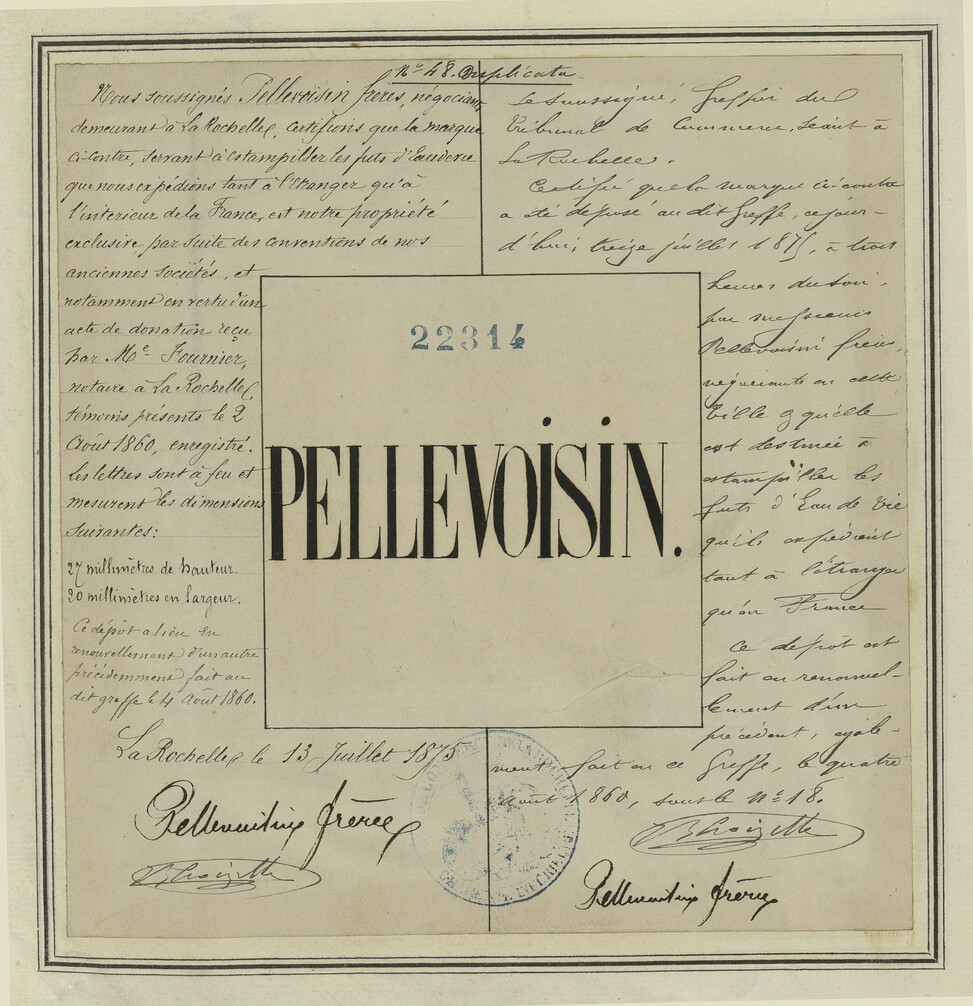 Nº 48. Duplicata.
Nous soussignés Pellevoisin frères, négociants
demeurant à La Rochelle, certifions que la marque
ci-contre, servant à estampiller les futs d'Eaudevie
que nous expédions tant à l'étranger qu'à
l'intérieur de la France, est notre propriété
exclusive par suite des conventions de nos
anciennes sociétés, et
notamment en vertu d'un
acte de donation reçu
par Me Fournier,
notaire à La Rochelle,
témoins présents le 2
Août 1860, enregistré.
Les lettres sont à feu et
mesurent les dimensions
suivantes:
27 millimètres de hauteur.
20 millimètres en largeur.
Ce dépôt a lieu en
renouvellement d'un autre
précédemment fait au
dit greffe le 4 Août 1860.
La Rochelle le 13 Juillet 1875
Pellevoisin frères
22314
PELLEVOISIN.
Le soussigné, Greffier du
Tribunal de Commerce, séant à
La Rochelle.
Certifie que la marque ci-contre
a été déposé au dit Greffe, ce jour-
d'hui, treize juillet 1875, à trois
heures du soir,
par messieurs
Pellevoisin frères,
négociants en cette
Ville & qu'elle
est destinée à
estampiller les
futs d'Eau de Vie
qu'ils expédient
tant à l'étranger
qu'en France
Ce dépôt est
fait en renouvel-
lement d'un
précédent, égale-
ment fait en ce Greffe, le quatre
Août 1860, sous le Nº 18.
Pellevoisin frères